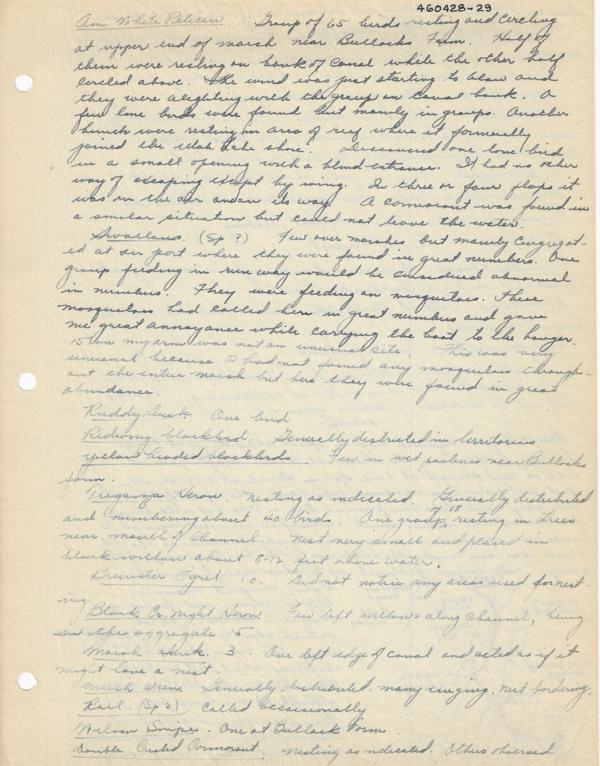 460428-29
Am. White Pelican. Group of 65 birds resting and circling
at upper end of marsh near Bullocks Farm. Half of
them were resting on bank of canal while the other half
circled above. The wind was just starting to blow and
they were alighting with the group on canal bank. A
few lone birds were found but mainly in groups. Another
bunch were resting in area of reef where it formerally
joined the Utah Lake shore. Discovered one lone bird
in a small opening with a blind entrance. It had no other
way of escaping except by wing. In three or four flaps it
was in the air and on its way. A cormorant was found in
a similar situation but could not leave the water.
Swallows. (Sp ?) Few over marshes but mainly congregat-
ed at air port where they were found in great numbers. One
group feeding in run way would be considered abnormal
in numbers. They were feeding on mosquitoes. These
mosquitoes had called here in great numbers and gave
me great annoyance while carrying the boat to the hanger.
15 on my arm was not an unusual site. This was very
unusual because I had not found any mosquitoes through-
out the entire marsh but here they were found in great
abundance.
Ruddy duck One bird
Redwing blackbird. Generally distributed in territories
Yellow headed blackbirds. Few in wet pastures near Bullocks
farm.
Treganza Heron. nesting as indicated. Generally distributed
and numbering about 40 birds. One group of 18 resting in trees
near mouth of channel. Nest very small and placed in
black willow about 8-12 feet above water.
Brewster Egret 10. Did not notice any areas used for nest-
ing
Black Cr. Night Heron Few left willows along channel, being
in aggregate 15.
Marsh Hawk. 3. One left edge of canal and acted as if it
might have a nest.
Marsh wren Generally distributed. many singing, nest
Rail. (Sp ?) Called occasionally
Wilson Snipe. One at Bullock Farm
Double Crested Cormorant. nesting as indicated. Others observed